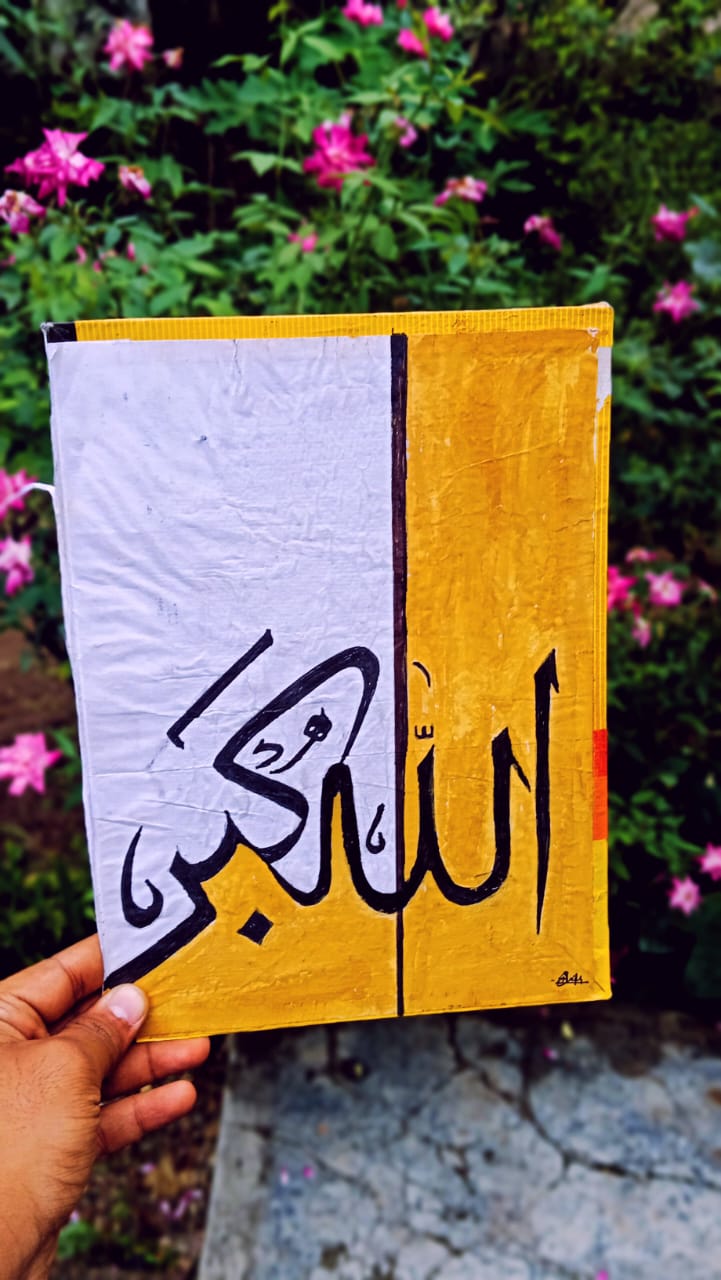 اللّٰه اكبر